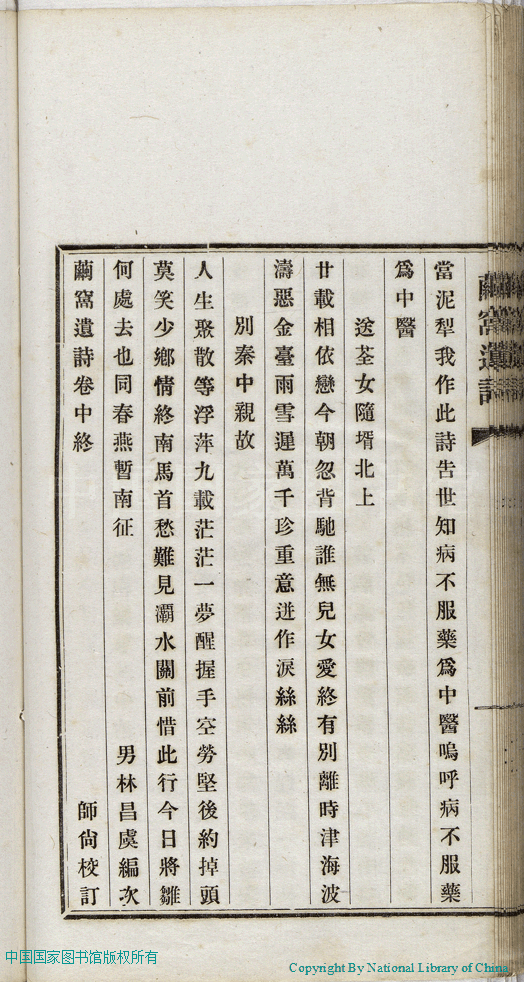 當泥犁我作此詩告世知病不服藥爲中醫嗚呼病不服藥
爲中醫
送荃女隨壻北上
廿載相依戀今朝忽背馳誰無兒女愛終有別離時津海波
濤惡金臺雨雪遲萬千珍重意迸作淚絲絲
別秦中親故
人生聚散等浮萍九載茫茫一夢醒握手空勞堅後約掉頭
莫笑少鄉情終南馬首愁難見灞水關前惜此行今日將雛
何處去也同春燕暫南征 男林昌虞編次
繭窩遺詩卷中終 師尙校訂
繭窩遺詩
中国国家图书馆版权所有
Copyright By National Library of China